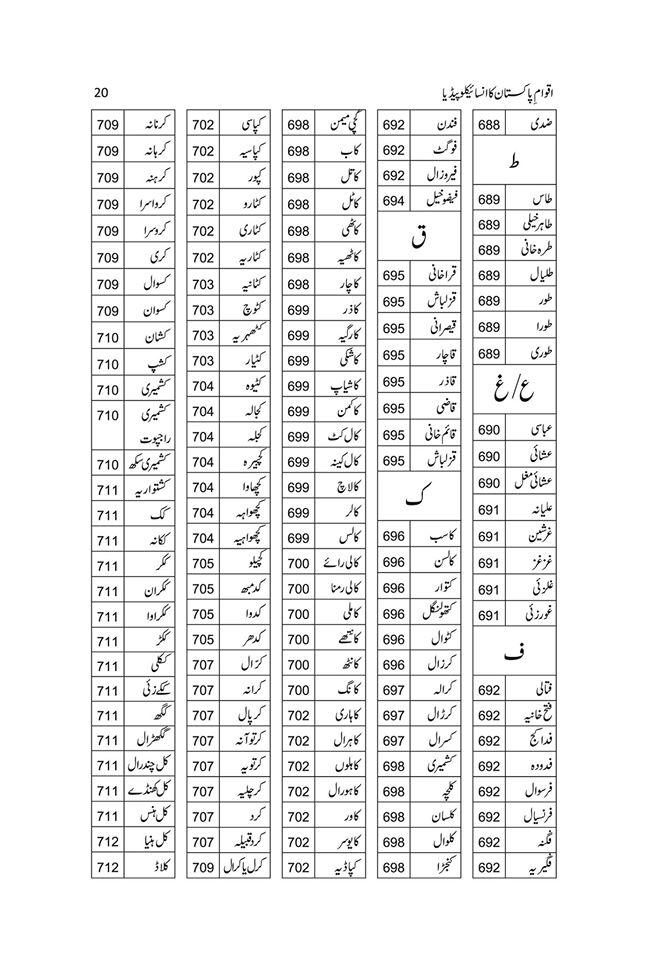 اقوامِ پاکستان کا انسائیکلوپیڈیا 20
ضدی 688
ط
طاس 689
طاہر خیلی 689
طرہ خانی 689
طلیال 689
طور 689
طورا 689
طوری 689
ع/غ
عباسی 690
عشائی 690
عشائی مغل 690
علیانہ 691
غرشین 691
غزغز 691
غلزئی 691
غورزئی 691
ف
فتالی 692
فتح خانیہ 692
فداکج 692
فدودہ 692
فرسوال 692
فرنسیال 692
فگنہ 692
فگیریہ 692
فندن 692
فوگٹ 692
فیروزال 692
فیضوخیل 694
ق
قراخانی 695
قزلباش 695
قیصرانی 695
قاچار 695
قاذر 695
قاضی 695
قائم خانی 695
قزلباش 695
ک
کاسب 696
کالسن 696
کتوار 696
کتھونگل 696
کٹوال 696
کرزال 696
کرالہ 697
کرژال 697
کسرال 697
کشمیری 698
کلچہ 698
کلسان 698
کلوال 698
کنجڑا 698
کچی میمن 698
کاب 698
کاتل 698
کاٹل 698
کاٹھی 698
کاٹھیہ 698
کاچار 698
کاذر 699
کارگیہ 699
کاشکی 699
کاشیاپ 699
کاکمن 699
کال کٹ 699
کال کینہ 699
کالاچ 699
کالر 699
کالس 699
کالی رائے 700
کالی رمنا 700
کاملی 700
کانتھے 700
کانٹھ 700
کانگ 700
کاہاری 702
کاہرال 702
کاہلوں 702
کاہورال 702
کاور 702
کایوسر 702
کپاڈیہ 702
کپاسی 702
کپاسیہ 702
کپور 702
کٹارو 702
کٹاری 702
کٹاریہ 702
کٹانیہ 703
کٹوچ 703
کٹھہریہ 703
کٹیار 703
کٹیوہ 704
کجالہ 704
کجلہ 704
کچیرہ 704
کچھاوا 704
کچھواہہ 704
کچھواہیہ 704
کچیلو 705
کدمبھ 705
کدوا 705
کدھر 705
کڑال 707
کرانہ 707
کرپال 707
کرتوآنہ 707
کرتویہ 707
کرچلیہ 707
کرد 707
کرد قبیلہ 707
کرل یا کرال 709
کرنانہ 709
کرہانہ 709
کرہنہ 709
کرواسرا 709
کروسرا 709
کری 709
کسوال 709
کسوان 709
کشان 710
کشپ 710
کشمیری 710
کشمیری 710
راجپوت
کشمیری سکھ 710
کشتواریہ 711
کک 711
ککانہ 711
ککر 711
ککران 711
ککراوا 711
ککڑ 711
ککلی 711
ککے زئی 711
کگھ 711
گکھڑال 711
کل چندرال 711
کل کھنڈے 711
کل ہنس 711
کل ہنیا 712
کلاڈ 712